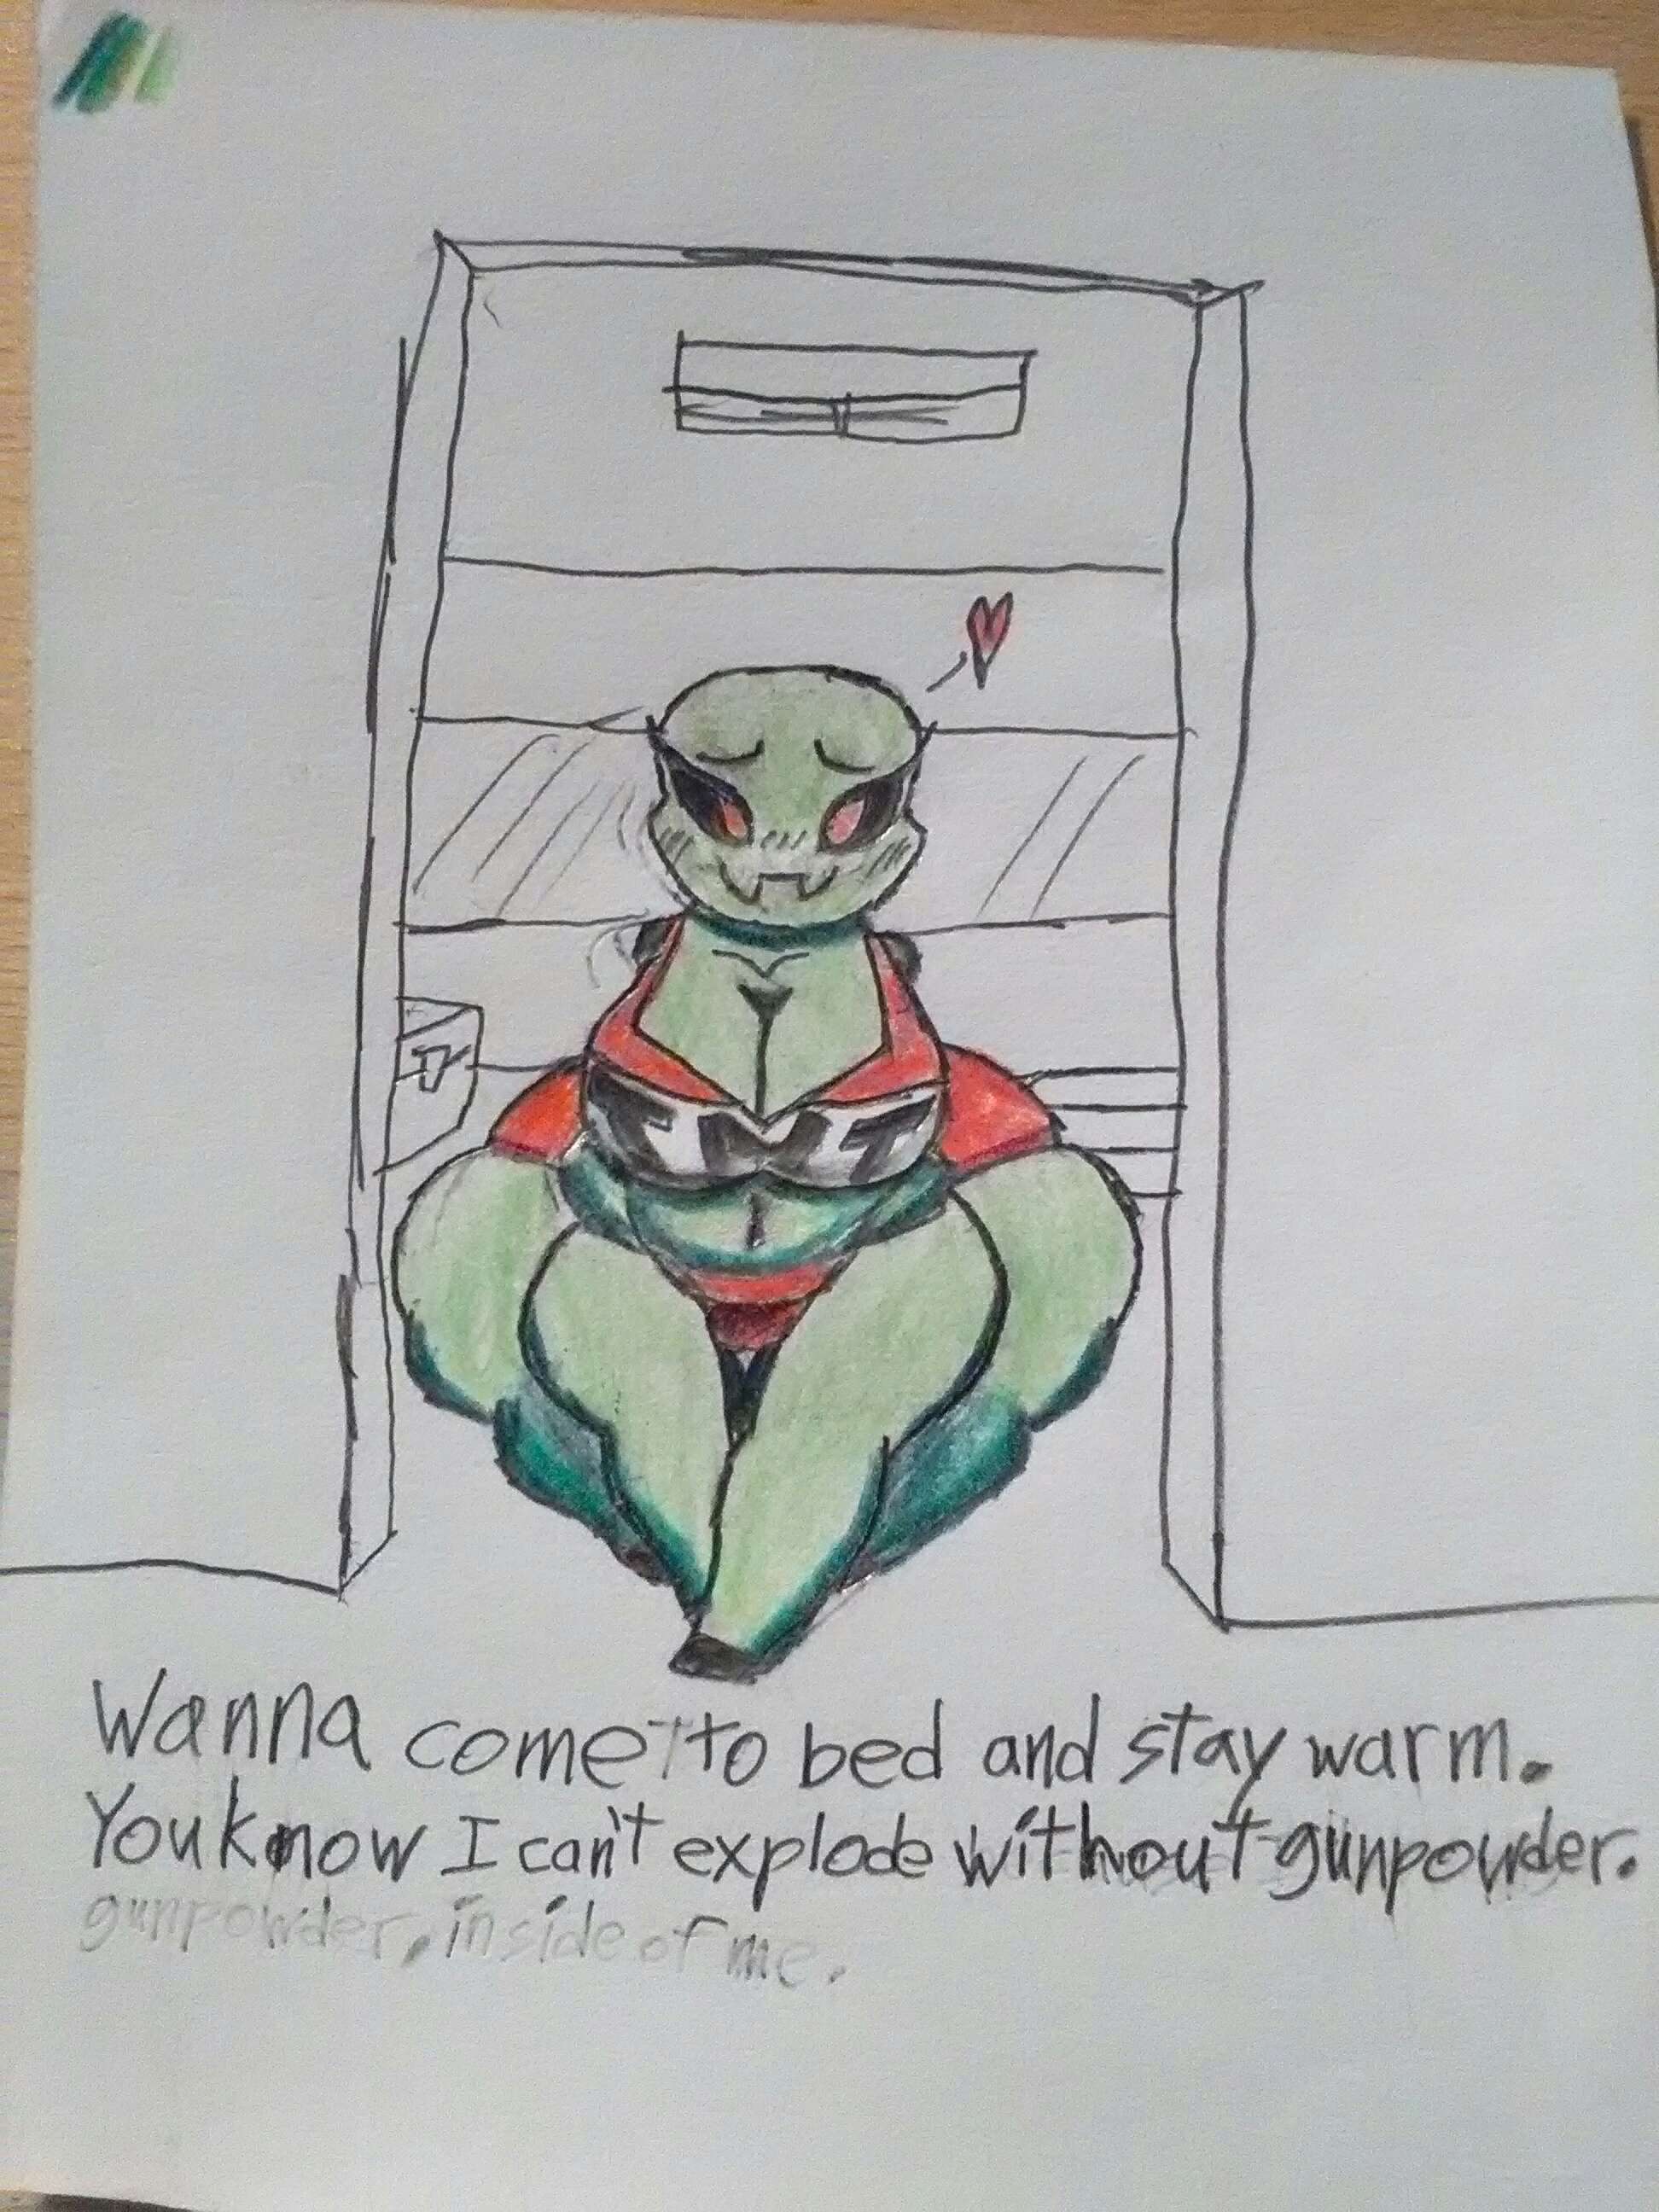 TNT
Wanna come to bed and stay warm.
You know I can't explode without gunpowder.
gunpowder. inside of me.